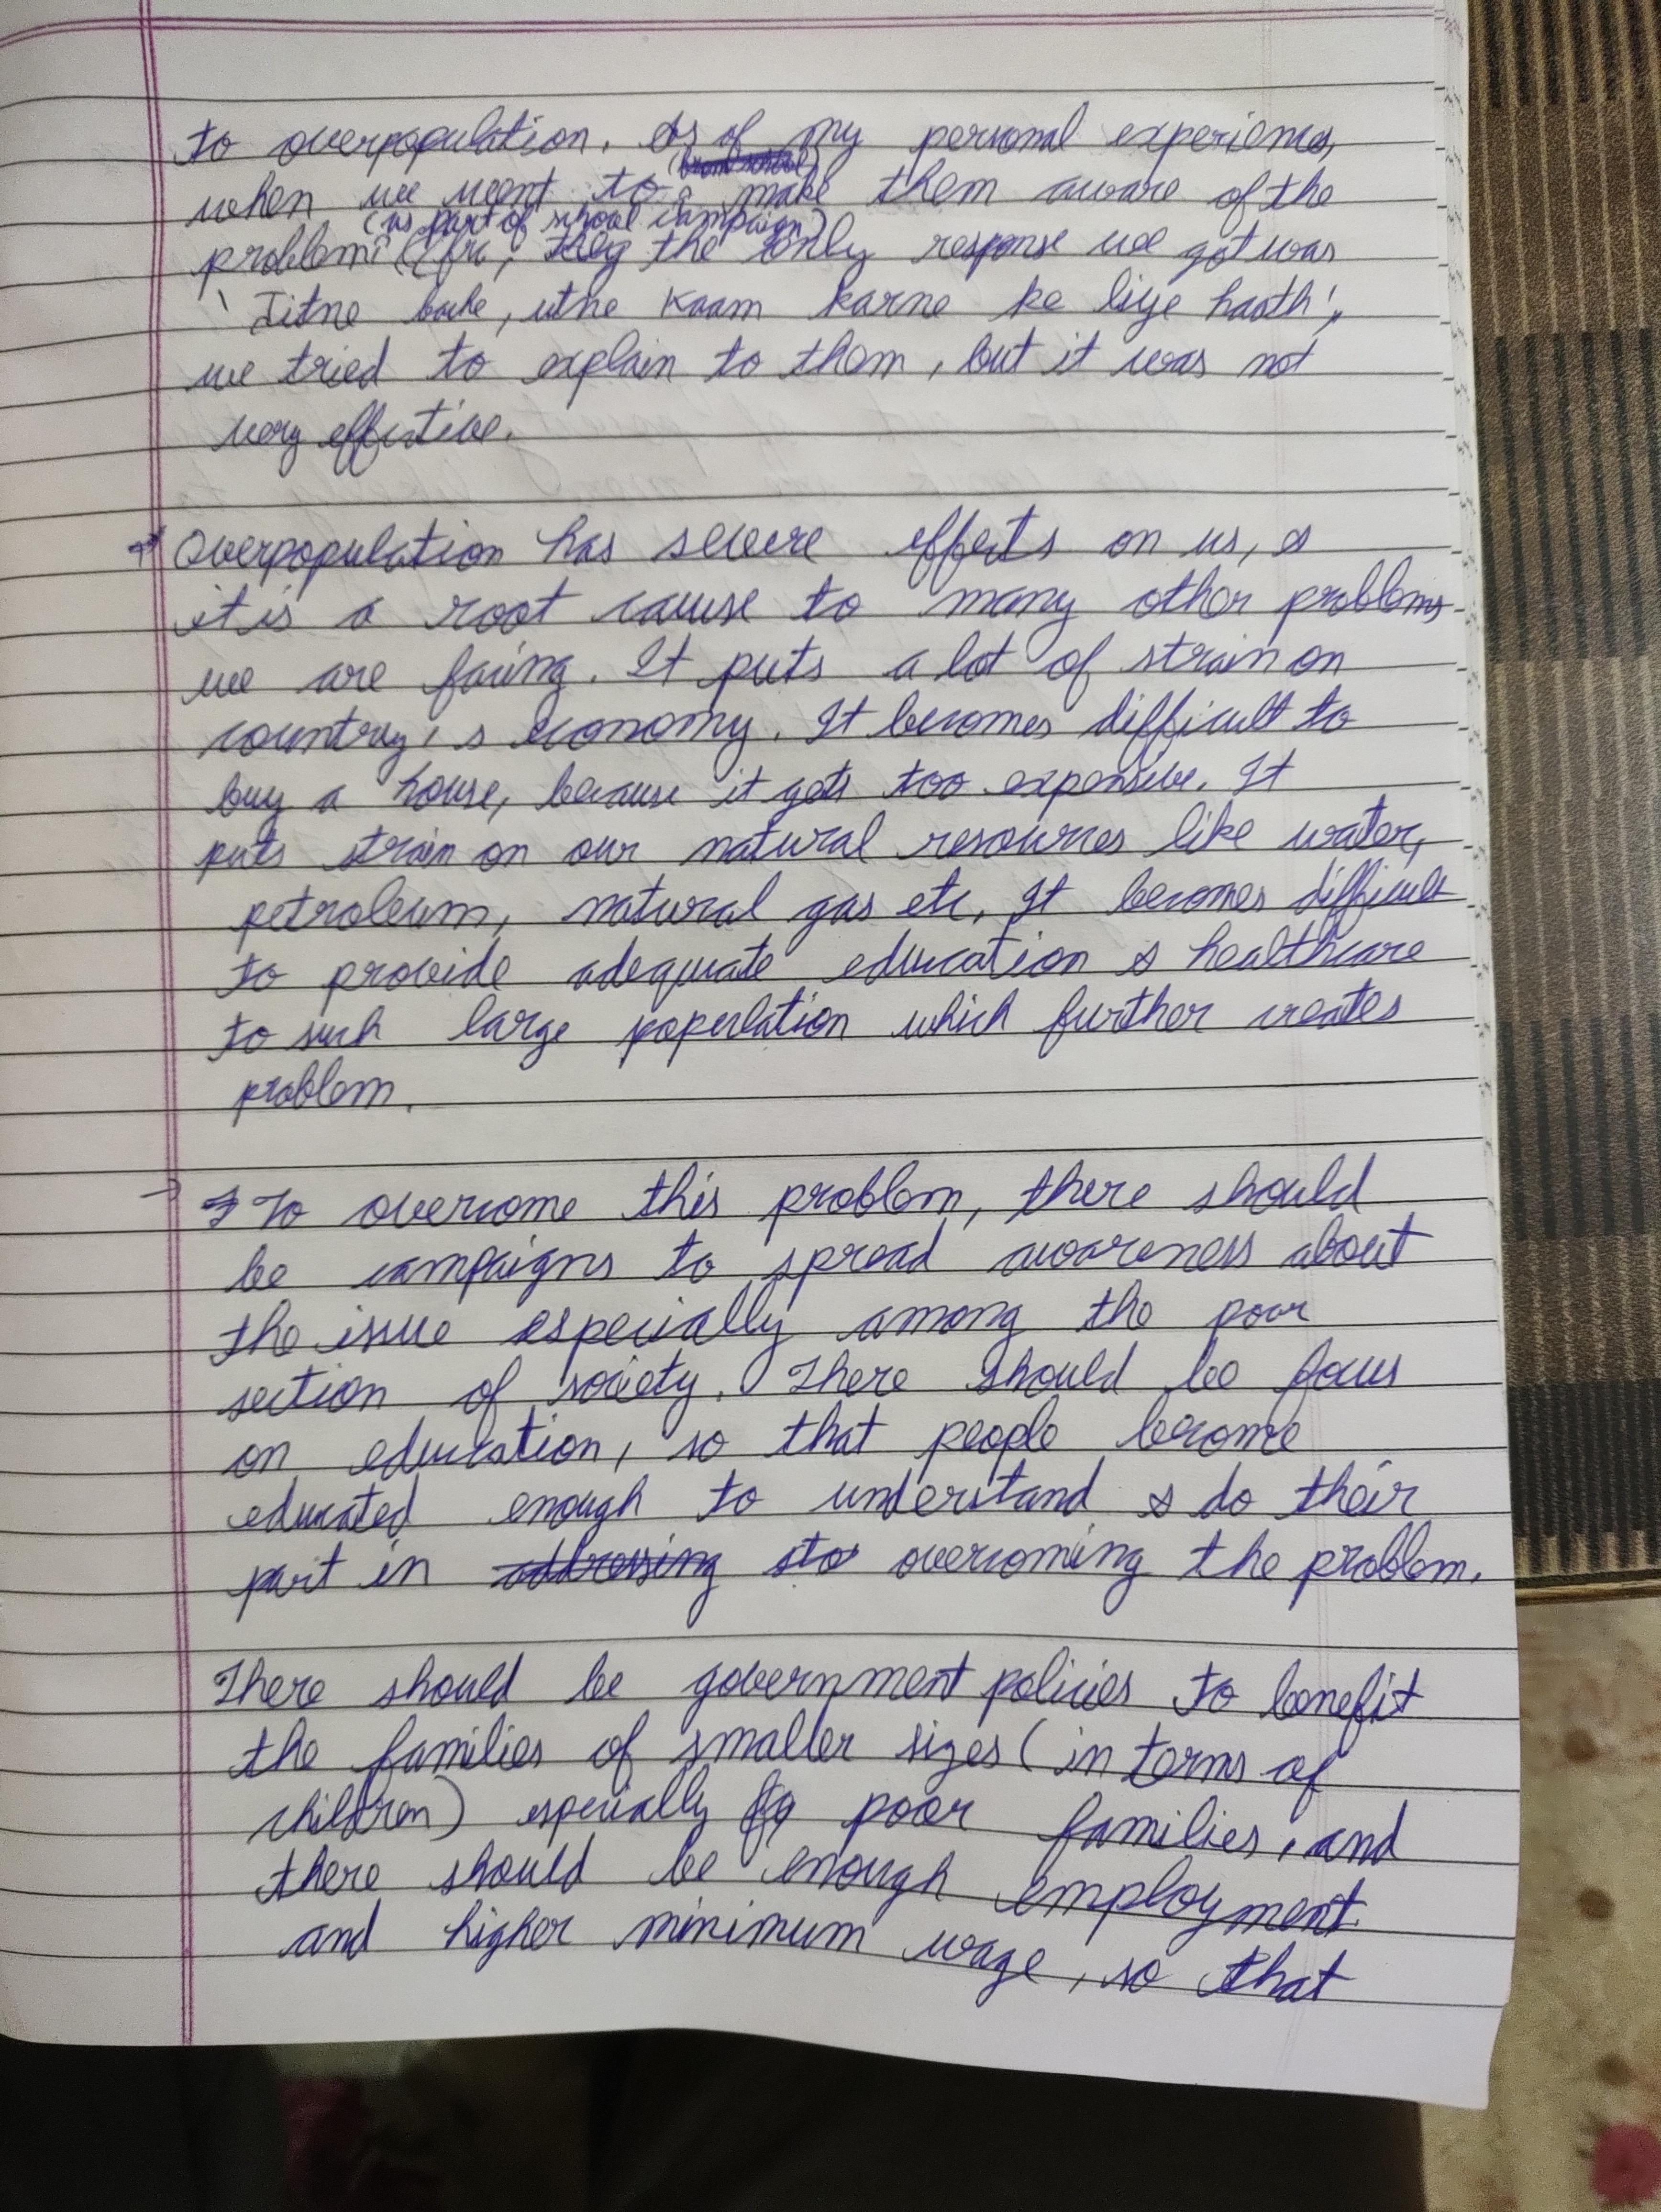 to overpopulation. As of my personal experience,
when we went to make them aware of the
(as part of school campaign)
problem, the only response we got was
'Jitne bache, utne kaam karne ke liye haath',
we tried to explain to them, but it was not
very effective.
Overpopulation has severe effects on us,
it is a root cause to many other problems
we are facing. It puts a lot of strain on
country's economy. It becomes difficult to
buy a house, because it gets too expensive. It
puts strain on our natural resources like water,
petroleum, natural gas etc. It becomes difficult
to provide adequate education & healthcare
to such large population which further creates
problem.
→ To overcome this problem, there should
be campaigns to spread awareness about
the issue especially among the poor
section of society. There should be focus
on education, so that people become
educated enough to understand & do their
part in addressing overcoming the problem.
There should be government policies to benefit
the families of smaller sizes (in terms of
children) especially poor families, and
there should be enough employment
and higher minimum wage, so that